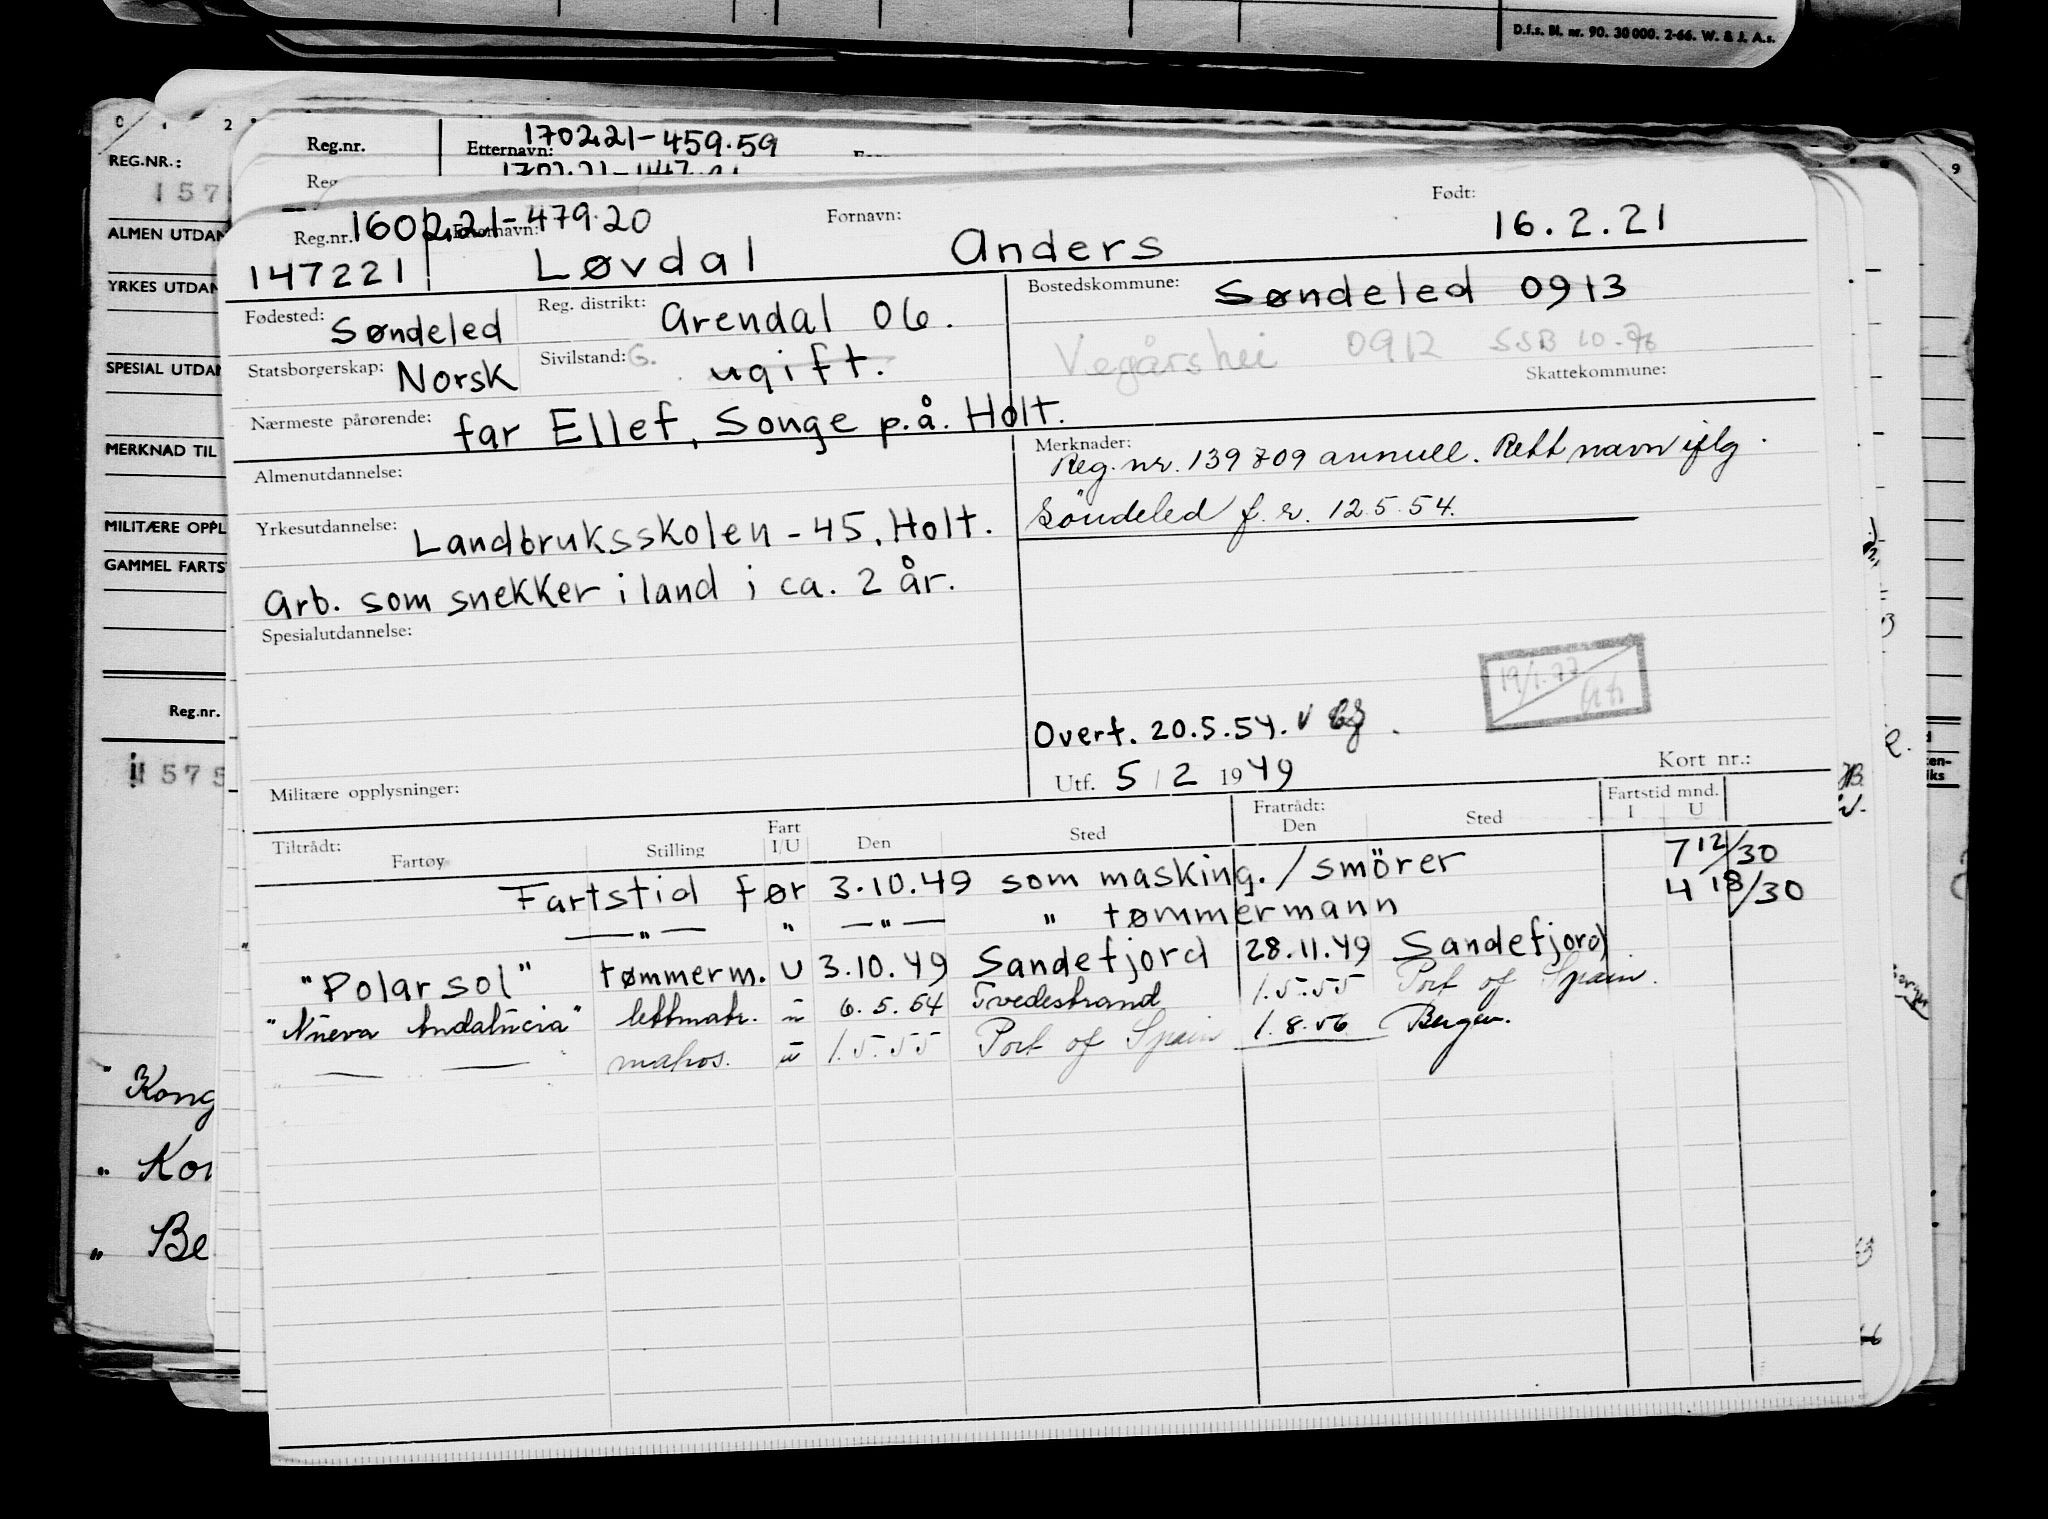 D.f.s. Bl. nr. 90. 30 000. 2-66. W. & J. A.s.
0 1 2 9
REG.NR.:
157
ALMEN UTDAN
YRKES UTDAN
SPESIAL UTDAN
MERKNAD TIL
MILITÆRE OPPL
GAMMEL FARTS
Reg.nr.
1575
" Kong
" Kon
" Be
Reg.nr. Etternavn: 170221-459.59
Reg
Reg.nr. 160221-479.20 Etternavn: Fornavn: Født:
147221 Løvdal Anders 16.2.21
Fødested: Søndeled Reg. distrikt: Arendal 06. Bostedskommune: Søndeled 0913
Statsborgerskap: Norsk Sivilstand: G. ugift. Vegårshei 0912 SSB 10-76
Skattekommune:
Nærmeste pårørende: far Ellef, Songe p.å. Holt.
Almenutdannelse: Merknader: Reg. nr. 139709 annull. Rett navn iflg.
Søndeled f. r. 12.5.54.
Yrkesutdannelse: Landbruksskolen - 45, Holt.
Arb. som snekker i land i ca. 2 år.
Spesialutdannelse:
19/1-77
Overt. 20.5.54. v
Utf. 5/2 1949 Kort nr.:
Militære opplysninger:
Tiltrådt: Fartøy Stilling Fart I/U Den Sted Fratrådt: Den Sted Fartstid mnd. I U
Fartstid før 3.10.49 som masking./smörer 7 12/30
—"— " —"— " tømmermann 4 18/30
"Polarsol" tømmerm. U 3.10.49 Sandefjord 28.11.49 Sandefjord
"Nueva Andalucia" lettmatr. u 6.5.54 Tvedestrand 1.5.55 Port of Spain.
— — matros. u 1.5.55 Port of Spain 1.8.56 Bergen.